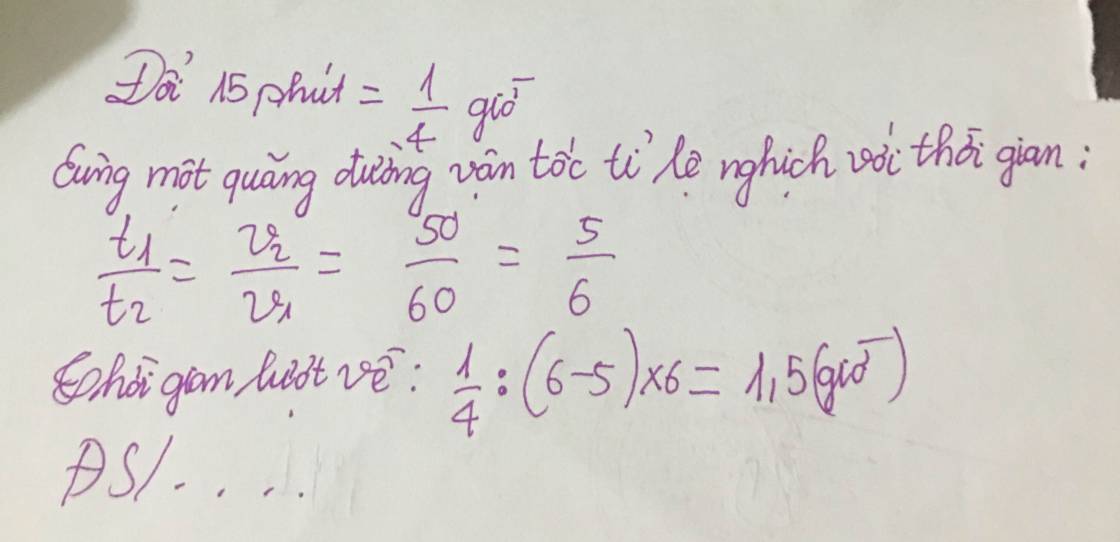 Đổi 15 phút = 1/4 giờ
Cùng một quãng đường vận tốc tỉ lệ nghịch với thời gian :
t1/t2 = v2/v1 = 50/60 = 5/6
Thời gian lượt về : 1/4 : (6-5) x 6 = 1,5 (giờ)
ĐS/. . . .